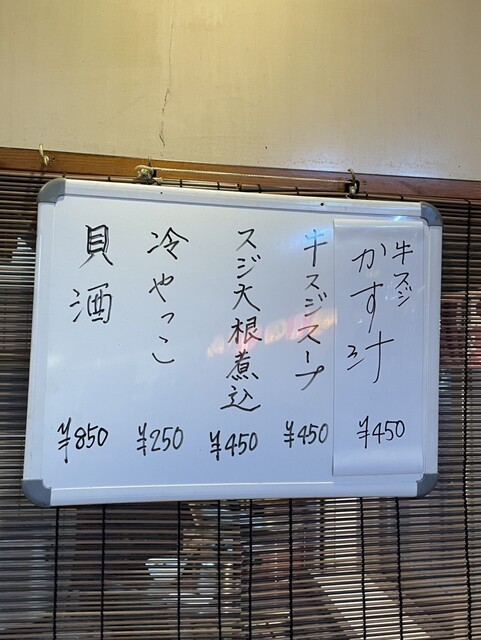 牛スジ
かす汁
¥450
牛スジスープ
¥450
スジ大根煮込
¥450
冷やっこ
¥250
貝酒
¥850